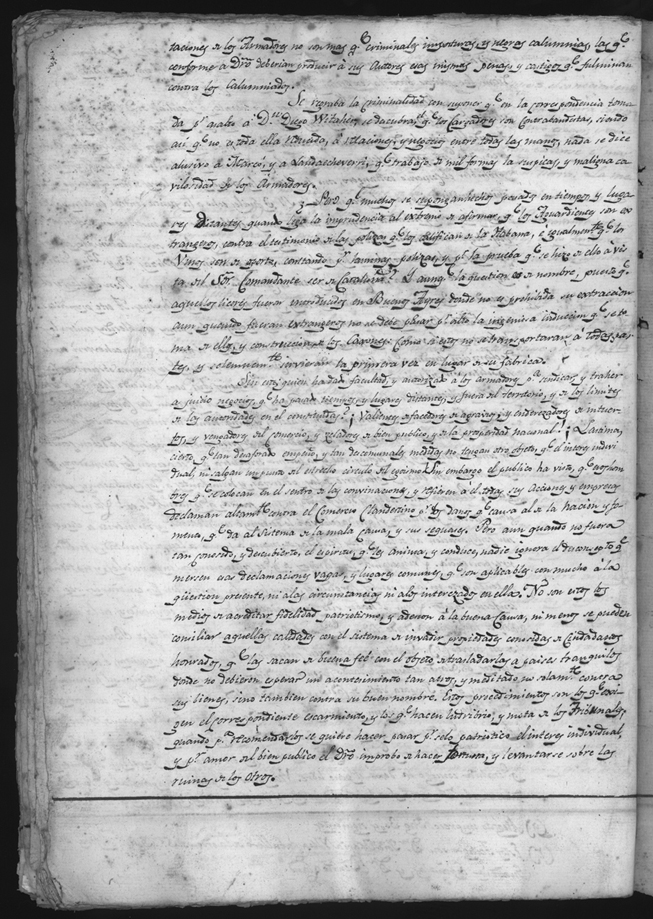 taciones de los Armadores no son mas q.e criminales imposturas, es negras calumnias, las q.e
conforme a Dro deberian producir à sus Autores esas mismas penas, y castigos q.e fulminan
contra los Calumniados.
Se recraba la criminalidad con suponer q.e en la correspondencia toma-
da p.r asalto à D.n Diego Witaker, se descubra q.e los Cargadores son Contrabandistas, siendo
asi q.e no es toda ella reducida, à relaciones, y negocios entre todas las manos, nada se dice
alusivo à Marcó, y a Landaecheverri, q.e trabajo de mil formas la suspicaz, y maligna ca-
vilosidad de los Armadores.
Pero q.e muchos se supongan hechos pasados en tiempos y luga-
res distantes, quando llega la imprudencia al extremo de afirmar, q.e los Aguardientes son ex-
trangeros, contra el testimonio de las polizas q.e los califican de la Habana, è igualment.e q.e los
Vinos son de oporto, constando p.r las mismas polizas, y p.r la prueba q.e se hizo de ello à vis-
ta del Sõr. Comandante ser de Cataluña? Y aunq.e la question es de nombre, puesto q.e
aquellos licores fueran introducidos en Buenos Ayres donde no es prohibida su extraccion
aun quando fueran extrangeros no se debe pasar p.r alto la ingeniosa induccion q.e se to-
ma de ello, y construccion de los Caxones: Como si estos no se transportaran à todas par-
tes, es solemem.te sirvieran la primera vez en lugar de su fabrica.
quien ha dado facultad, y autorizado à los Armadores p.a sindicar, y traher
a juicio negocios q.e ha pasado tiempos, y lugares distantes, y fuera del territorio, y de los limites
de las autoridades en el constituidas? ¡Valientes desfacedores de agravios, y enderezadores de tuer-
tos, y vengadores del comercio, y zeladores de bien publico, y de la prosperidad nacional! ¡Lastima,
cierto, q.e tan desaforado empeño, y tan descomunales medidas no tengan otro objeto, q.e el interes indivi-
dual, ni salgan un punto del estrecho circulo del egoismo! Sin embargo el publico ha visto, q.e los hom-
bres q.e se colocan en el sentro de las convinaciones, y refieren à el todas sus acciones y empresas
declaman altam.te contra el Comercio Clandestino p.r los daños q.e causa al de la nacion y fo-
menta, q.e da al Sistema de la mala Causa, y sus sequaces. Pero aun quando no fuera
tan conocido, y descubierto, el espiritu, q.e les anima, y conduce, nadie ignora el desconcepto q.e
meresen esas declamaciones vagas, y lugares comunes, q.e son aplicables con mucho à la
question presente, ni a las circunstancias ni a los interezados en ella. No son estos los
medios de acreditar fidelidad, patriotismo, y adesion à la buena Causa, ni menos se pueden
conciliar aquellas calidades con el sistema de invadir propiedades conocidas de Ciudadanos
honrados, q.e las sacan de buena feè con el objeto de trasladarlas a paises tranquilos
donde no debieron esperar un acontecimiento tan atros, y meditado, no solam.te contra
sus bienes, sino tambien contra su buen nombre. Estos procedimientos son los q.e exi-
gen el correspondiente escarmiento, y los q.e hacen ludibrio, y mofa de los Tribunales,
quando p.a recomendarlos se quiere hacer pasar p.r zelo patriotico el interes individual,
y p.r amor del bien publico el Dro improbo de hacer fortuna, y levantarse sobre las
ruinas de los otros.